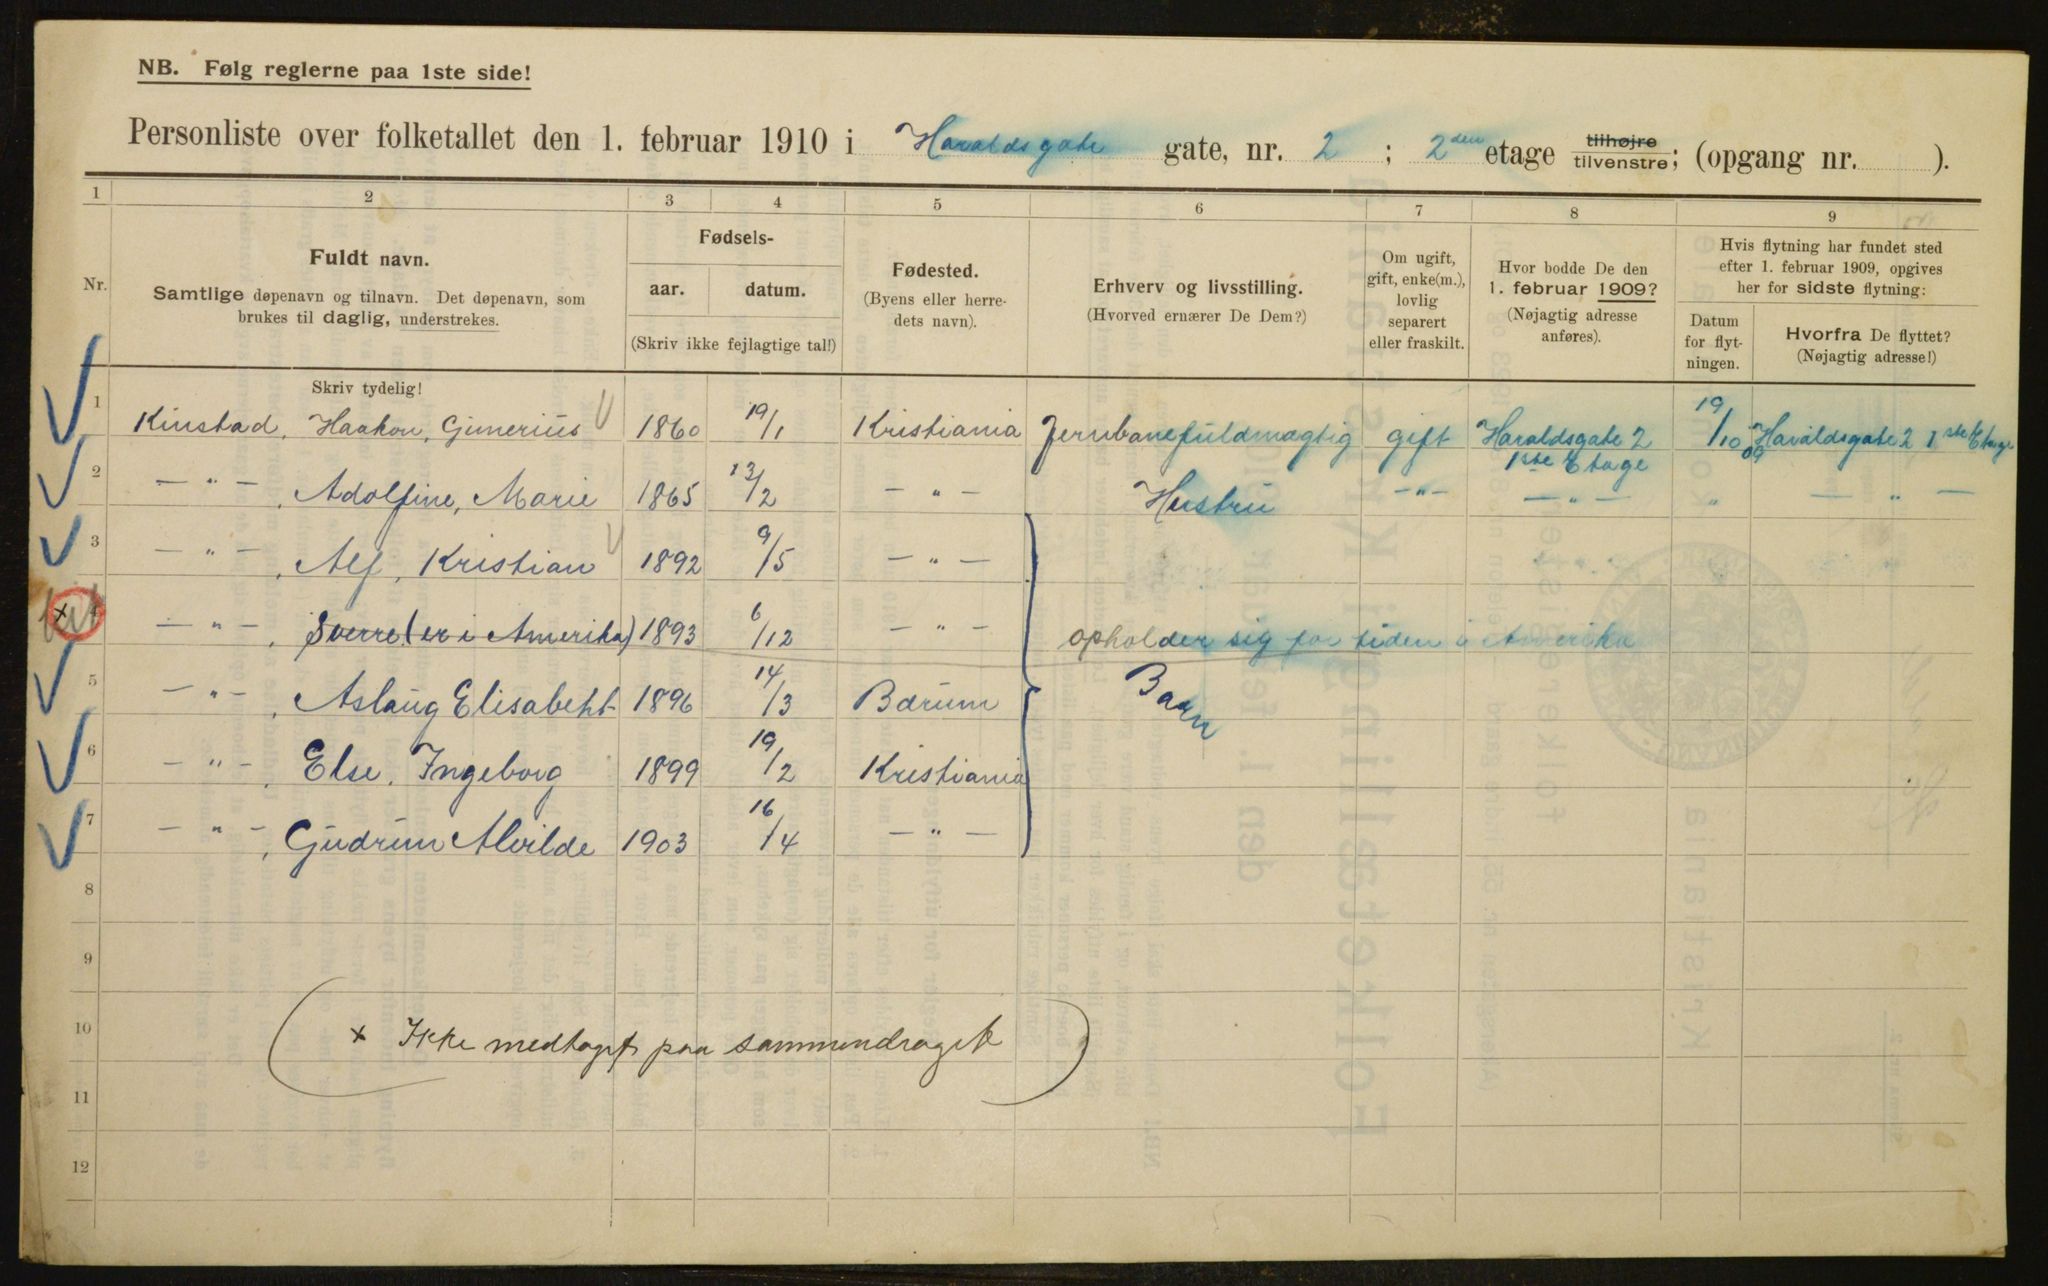 NB. Følg reglerne paa 1ste side!
Personliste over folketallet den 1. februar 1910 i Haraldsgate gate, nr. 2 ; 2den etage tilhøjre tilvenstre; (opgang nr. ).
1 2 3 4 5 6 7 8 9
Nr.
Fuldt navn.
Samtlige døpenavn og tilnavn. Det døpenavn, som
brukes til daglig, understrekes.
Fødsels-
aar. datum.
(Skriv ikke fejlagtige tal!)
Fødested.
(Byens eller herre-
dets navn).
Erhverv og livsstilling.
(Hvorved ernærer De Dem?)
Om ugift,
gift, enke(m.),
lovlig
separert
eller fraskilt.
Hvor bodde De den
1. februar 1909?
(Nøjagtig adresse
anføres).
Hvis flytning har fundet sted
efter 1. februar 1909, opgives
her for sidste flytning:
Datum
for flyt-
ningen.
Hvorfra De flyttet?
(Nøjagtig adresse!)
Skriv tydelig!
1 Kinstad, Haakon, Gunerius 1860 19/1 Kristiania Jernbanefuldmægtig gift Haraldsgate 2 1ste Etage 19/10 09 Haraldsgate 2 1ste Etage
2 — " — , Adolfine, Marie 1865 13/2 — " — Hustru — " — — " — " — " —
3 — " — , Alf, Kristian 1892 9/5 — " —
x 4 — " — , Sverre (er i Amerika) 1893 6/12 — " — opholder sig for tiden i Amerika
5 — " — , Aslaug Elisabeht 1896 14/3 Bærum Barn
6 — " — , Else, Ingeborg 1899 19/2 Kristiania
7 — " — , Gudrun Alvilde 1903 16/4 — " —
8
9
10
x Ikke medtaget paa sammendraget
11
12